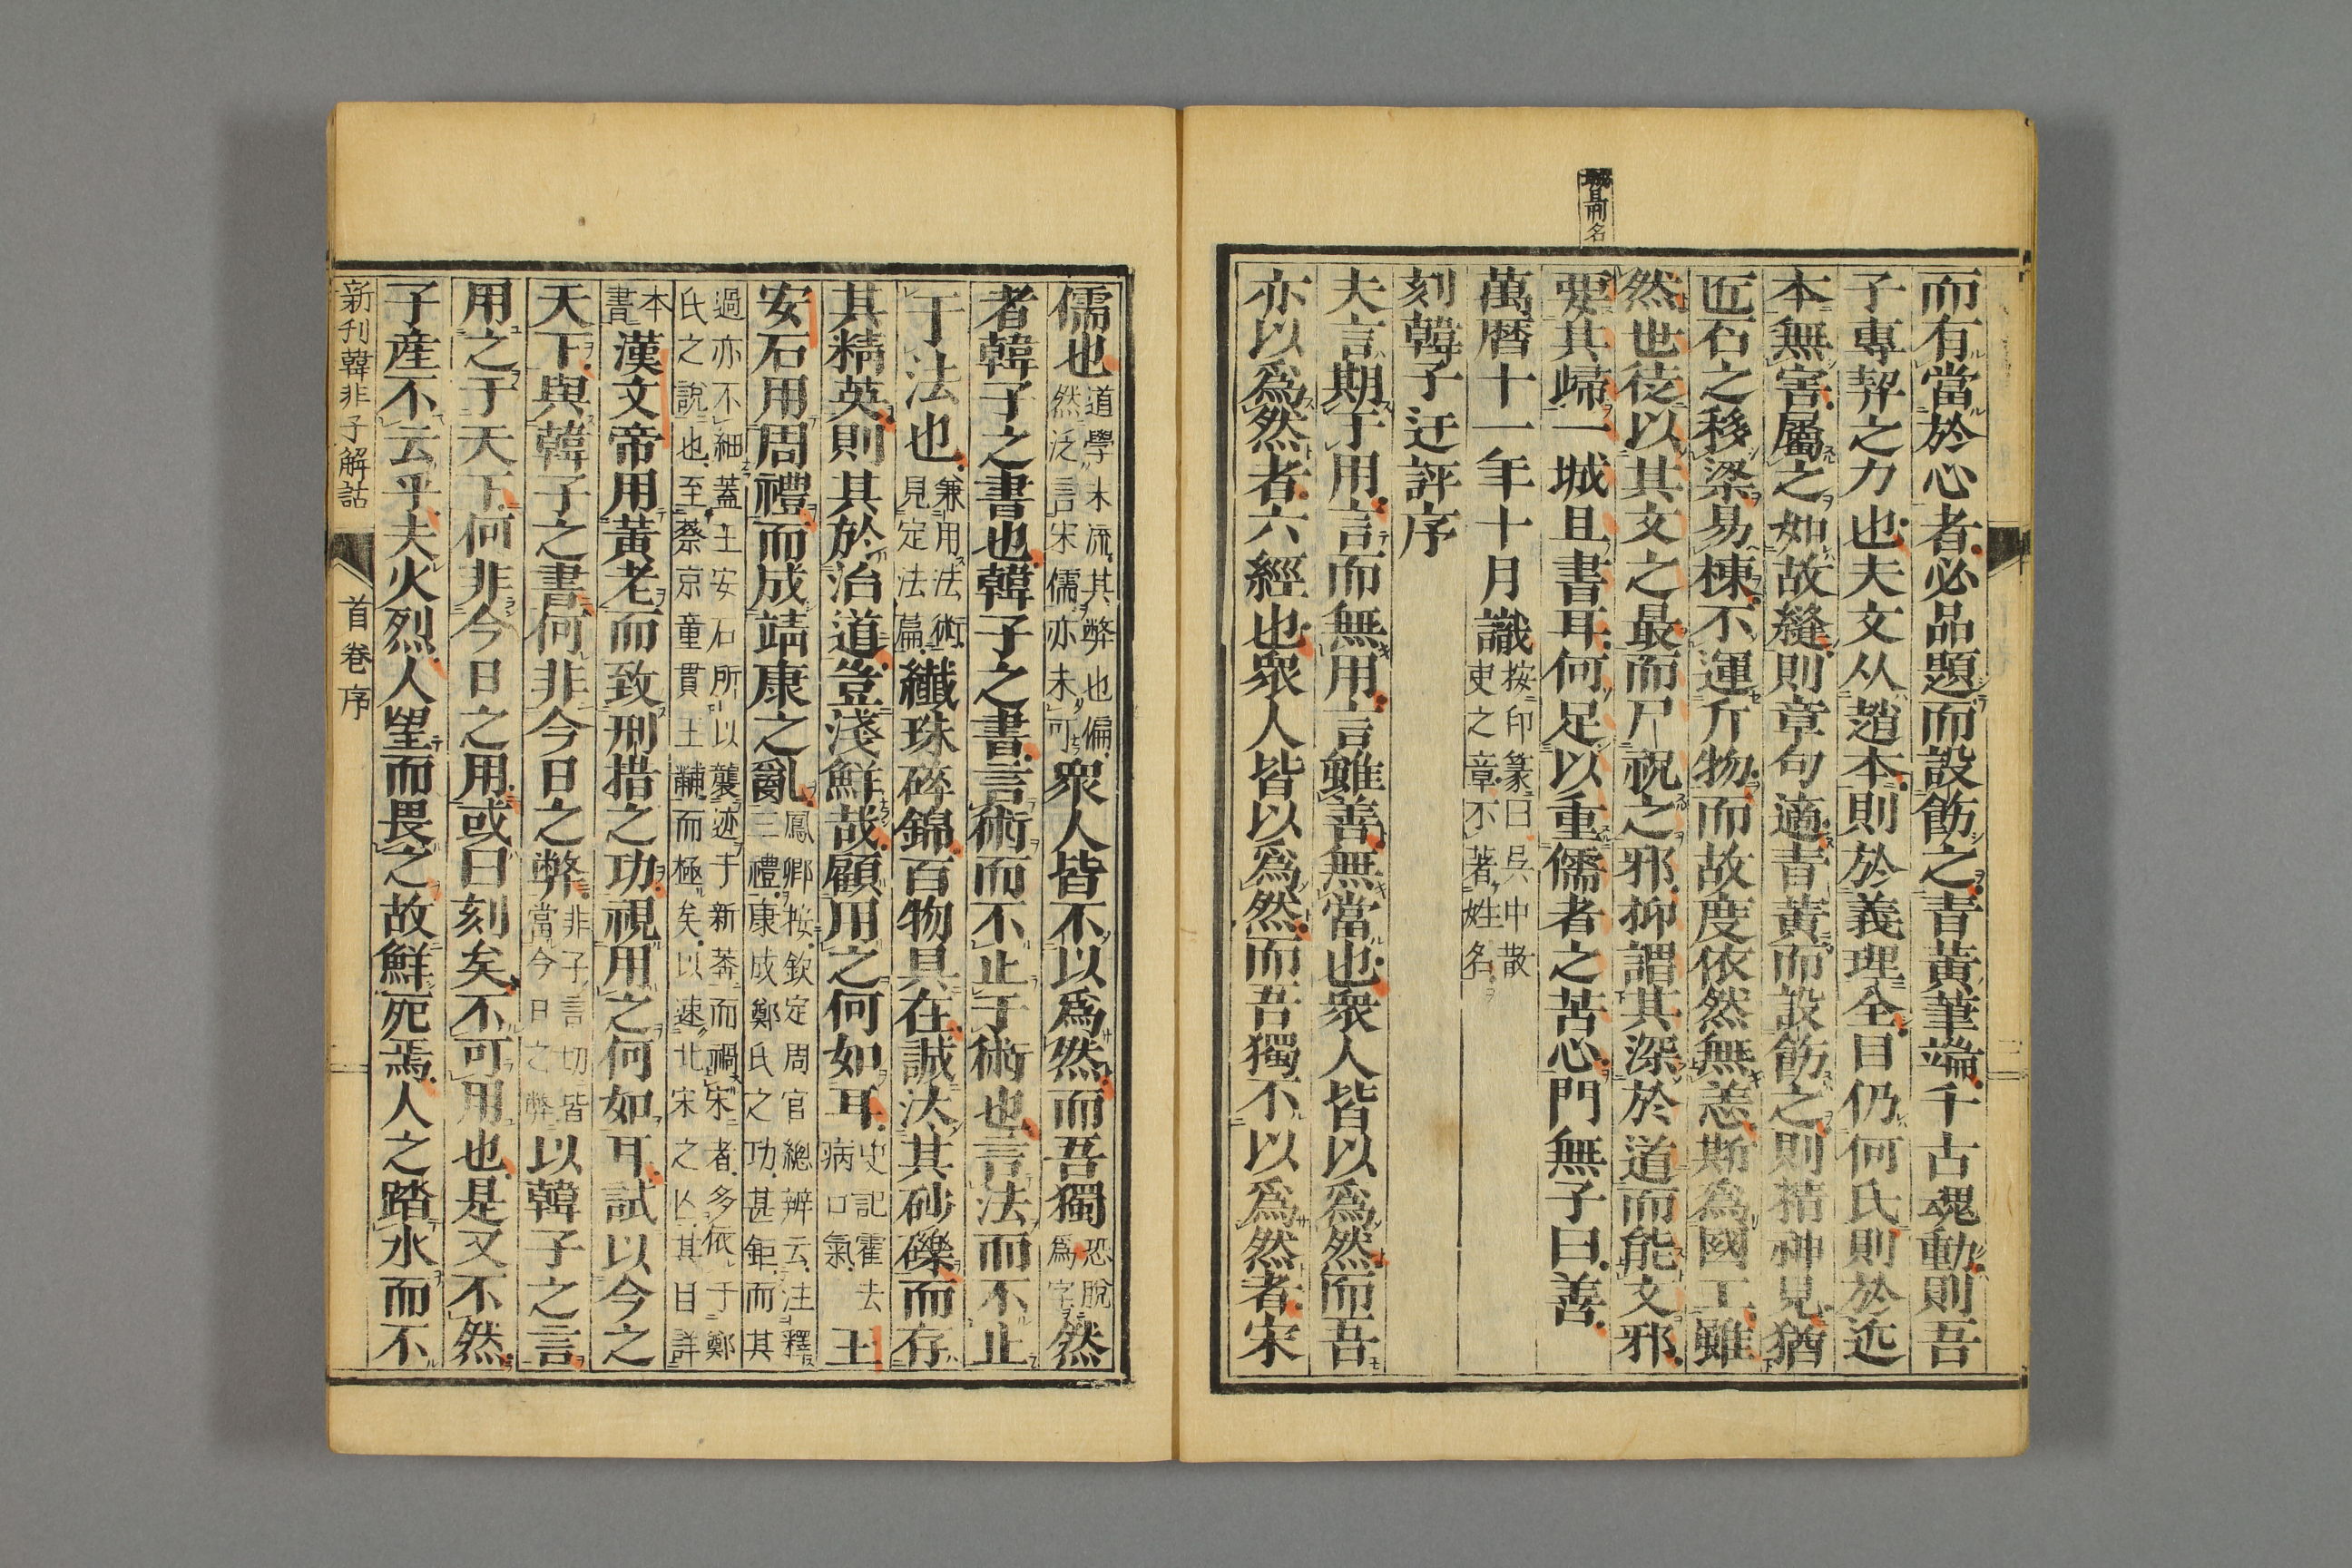 而有當於心者必品題而設飭之青黃筆端千古魂動則吾
子專挈之力也夫文从趙本則於義理全目仍何氏則於迄
本無害屬之如故縫則章句適青黃而設飭之則精神見猶
匠石之移梁易棟不運斤物而故度依然無恙斯為國工雖
然也徒以其文之最而尸祝之邪抑謂其深於道而能文邪
要其歸一城旦書耳何足以重儒者之苦心門無子曰善
萬曆十一年十月識按印篆曰吳中散
吏之章不著姓名
刻韓子迂評序
夫言期于用言而無用言雖善無當也眾人皆以爲然而吾
亦以爲然者六經也眾人皆以爲然而吾獨不以爲然者宋
儒也道學末流其弊也偏
然泛言宋儒亦未可眾人皆不以爲然而吾獨恐脫
爲字然
者韓子之書也韓子之書言術而不止于術也言法而不止
于法也兼用法術
見定法篇纖珠碎錦百物具在誠汰其砂礫而存
其精英則其於治道豈淺鮮哉顧用之何如耳史記霍去
病口氣王
安石用周禮而成靖康之亂鳳卿按欽定周官總辨云注釋
三禮康成鄭氏之功甚鉅而其
過亦不細蓋王安石所以襲迹于新莽而禍宋者多依于鄭
氏之說也至蔡京童貫王黼而極矣以速北宋之亾其目詳
本
書漢文帝用黃老而致刑措之功視用之何如耳試以今之
天下與韓子之書何非今日之弊非子言切皆
當今日之弊以韓子之言
用之于天下何非今日之用或曰刻矣不可用也是又不然
子產不云乎夫火烈人望而畏之故鮮死焉人之踏水而不
新刊韓非子解詁 首卷 序 二